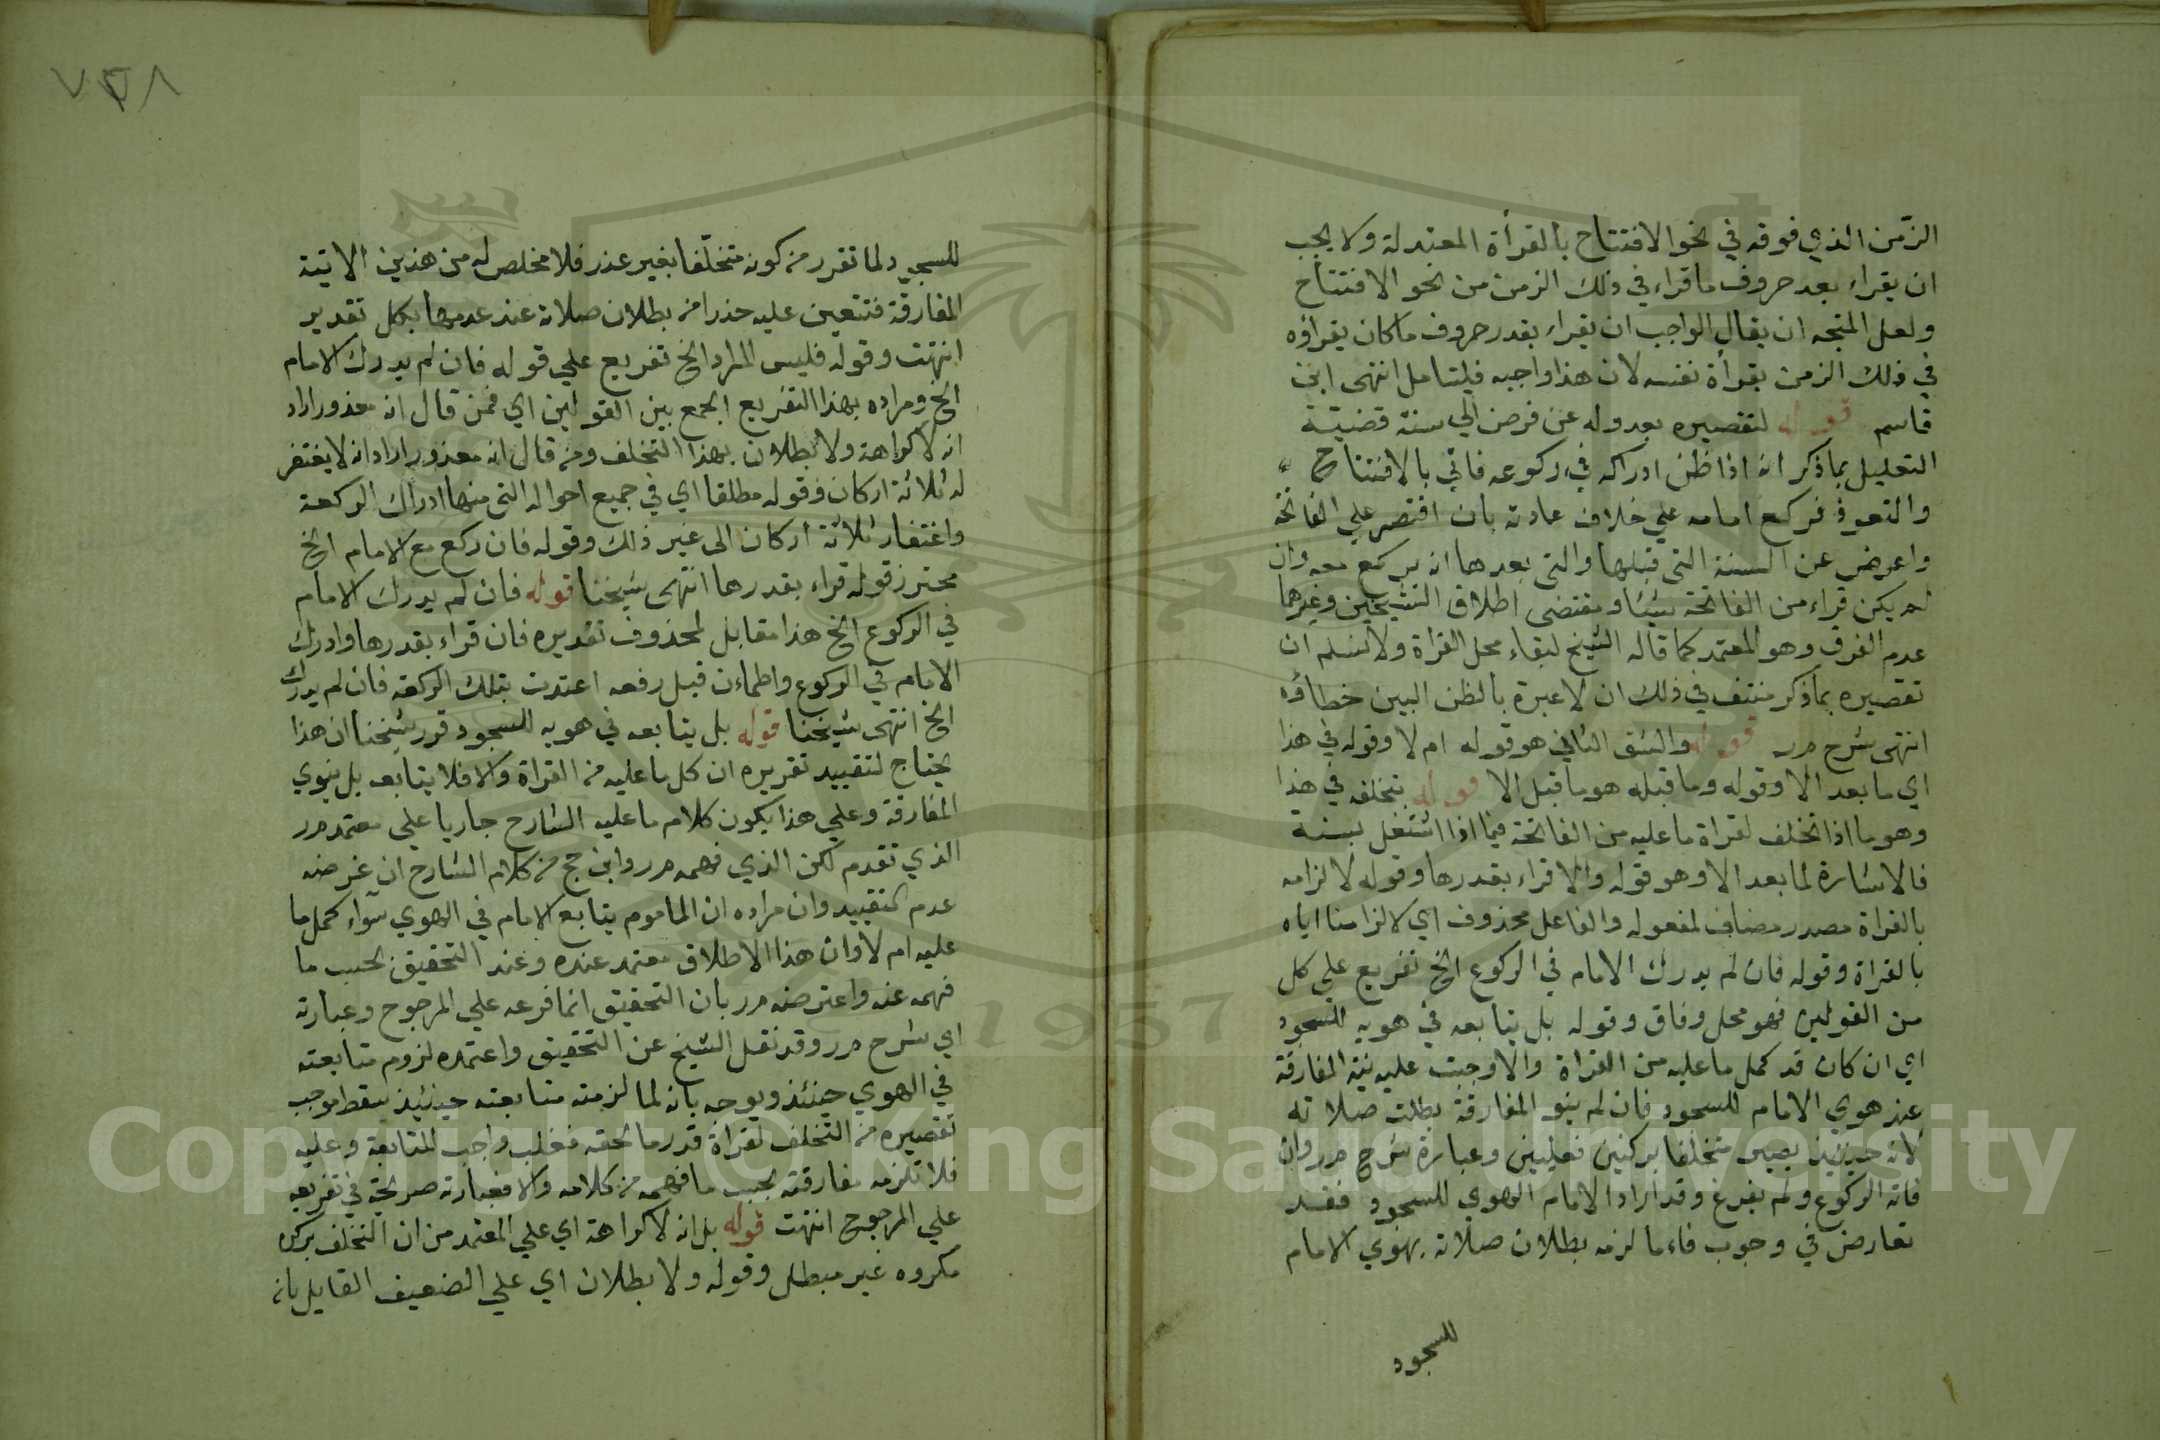 الزمن الذي فوقه في نحو الافتتاح بالقرأة المعتدلة ولا يجب
ان يقراء بعد حروف ما قراء في ذلك الزمن من نحو الافتتاح
ولعل المتجه ان يقال الواجب ان يقراء بقدر حروف ما كان يقراؤه
في ذلك الزمن بقرأة نفسه لان هذا واجبه فليتامل انتهى ابن
قاسم قوله لتقصيره بعدوله عن فرض الي سنة قضية
التعليل بما ذكر انه اذا ظن ادراكه في ركوعه فاتي بالافتتاح
والتعوذ فركع امامه علي خلاف عادته بان اقتصر علي الفاتحة
واعرض عن السنة التي قبلها والتي بعدها انه يركع معه وان
لم يكن قراء من الفاتحة شيئا ومقتضى اطلاق الشيخين وغيرهما
عدم الفرق وهو المعتمد كما قاله الشيخ لبقاء محل القراة ولا نسلم ان
تقصيره بما ذكر منتف في ذلك ان لا عبرة بالظن البين خطاؤه
انتهى شرح مرر قوله والشق الثاني هو قوله ام لا وقوله في هذا
اي ما بعد الا وقوله وما قبله هو ما قبل الا قوله بتخلفه في هذا
وهو ما اذا تخلف لقراة ما عليه من الفاتحة فيما اذا اشتغل بسنة
فالاشارة لما بعد الا وهو قوله والا قراء بقدرها وقوله لالزامه
بالقراة مصدر مضاف لمفعوله والفاعل محذوف اي لالزامنا اياه
بالقراة وقوله فان لم يدرك الامام في الركوع الخ تفريع علي كل
من القولين فهو محل وفاق وقوله بل يتابعه في هويه للسجود
اي ان كان قد كمل ما عليه من القراة والا وجبت عليه نية المفارقة
عند هوي الامام للسجود فان لم ينو المفارقة بطلت صلاته
لانه حينئذ يصير متخلفا بركنين فعليين وعبارة شرح مرر وان
فاته الركوع ولم يفرغ وقد اراد الامام الهوي للسجود فقد
تعارض في وجوب فاءما لزمه بطلان صلاته بهوي الامام
للسجود
٧٣٨
للسجود لما تقرر من كونه متخلفا بغير عذر فلا مخلص له من هذين الا بنية
المفارقة فتتعين عليه حذرا من بطلان صلاته عند عدمها بكل تقدير
انتهت وقوله فليس المراد الخ تفريع علي قوله فان لم يدرك الامام
الخ ومراده بهذا التفريع الجمع بين القولين اي فمن قال انه معذور اراد
انه لا كراهة ولا بطلان بهذا التخلف ومن قال انه معذور اراد انه لا يغتفر
له ثلاثة اركان وقوله مطلقا اي في جميع احواله التي منها ادراك الركعة
واغتفار ثلاثة اركان الى غير ذلك وقوله فان ركع مع الامام الخ
محترز قوله قراء بقدرها انتهى شيخنا قوله فان لم يدرك الامام
في الركوع الخ هذا مقابل لمحذوف تقديره فان قراء بقدرها وادرك
الامام في الركوع واطماءن قبل رفعه اعتدت بتلك الركعة فان لم يدرك
الخ انتهى شيخنا قوله بل يتابعه في هويه للسجود قرر شيخنا ان هذا
يحتاج لتقييد تقريره ان كل ما عليه من القراة والا فلا يتابعه بل ينوي
المفارقة وعلي هذا يكون كلام ما عليه الشارح جاريا علي معتمد مرر
الذي تقدم لكن الذي فهمه مرر وابن حج من كلام الشارح ان غرضه
عدم التقييد وان مراده ان الماموم يتابع الامام في الهوي سوآء كمل ما
عليه ام لا وان هذا الاطلاق معتمد عنده وعند التحقيق بحسب ما
فهمه عنه واعترضه مرر بان التحقيق انما فرعه علي المرجوح وعبارته
اي شرح مرر وقد نقل الشيخ عن التحقيق واعتمده لزوم متابعته
في الهوي حينئذ ويوجه بانه لما لزمته متابعته حينئذ سقط موجب
تقصيره من التخلف لقراة قدر ما لحقه فغلب واجب المتابعة وعليه
فلا تلزمه مفارقته بحسب ما فهمه من كلامه والا فعبارته صريحة في تفريعه
علي المرجوح انتهت قوله بل انه لا كراهة اي علي المعتمد من ان التخلف بركن
مكروه غير مبطل وقوله ولا بطلان اي علي الضعيف القايل بانه
Copyright © King Saud University
1957